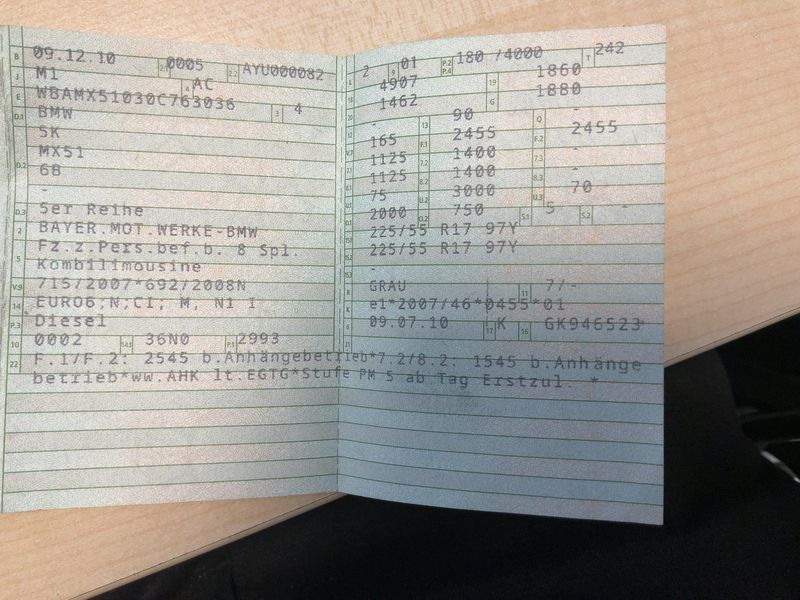 B 09.12.10 2.1 0005 2.2 AYU000082
J M1 4 AC
E WBAMX51030C763036 3 4
D.1 BMW
5K
D.2 MX51
6B
-
D.3 5er Reihe
2 BAYER.MOT.WERKE-BMW
5 Fz.z.Pers.bef.b. 8 Spl.
Kombilimousine
V.9 715/2007*692/2008N
14 EURO6;N;CI; M, N1 I
P.3 Diesel
10 0002 14.1 36N0 P.1 2993
22 F.1/F.2: 2545 b.Anhängebetrieb*7.2/8.2: 1545 b.Anhänge
betrieb*ww.AHK lt.EGTG*Stufe PM 5 ab Tag Erstzul. *
L 2 9 01 P.2 P.4 180 /4000 T 242
18 4907 19 1860
20 1462 G 1880
12 - 13 90 Q -
V.7 165 F.1 2455 F.2 2455
7.1 1125 7.2 1400 7.3 -
8.1 1125 8.2 1400 8.3 -
U.1 75 U.2 3000 U.3 70
O.1 2000 O.2 750 S.1 5 S.2 -
15.1 225/55 R17 97Y
15.2 225/55 R17 97Y
15.3 -
R GRAU 11 7/-
K e1*2007/46*0455*01
6 09.07.10 17 K 16 GK946523
21